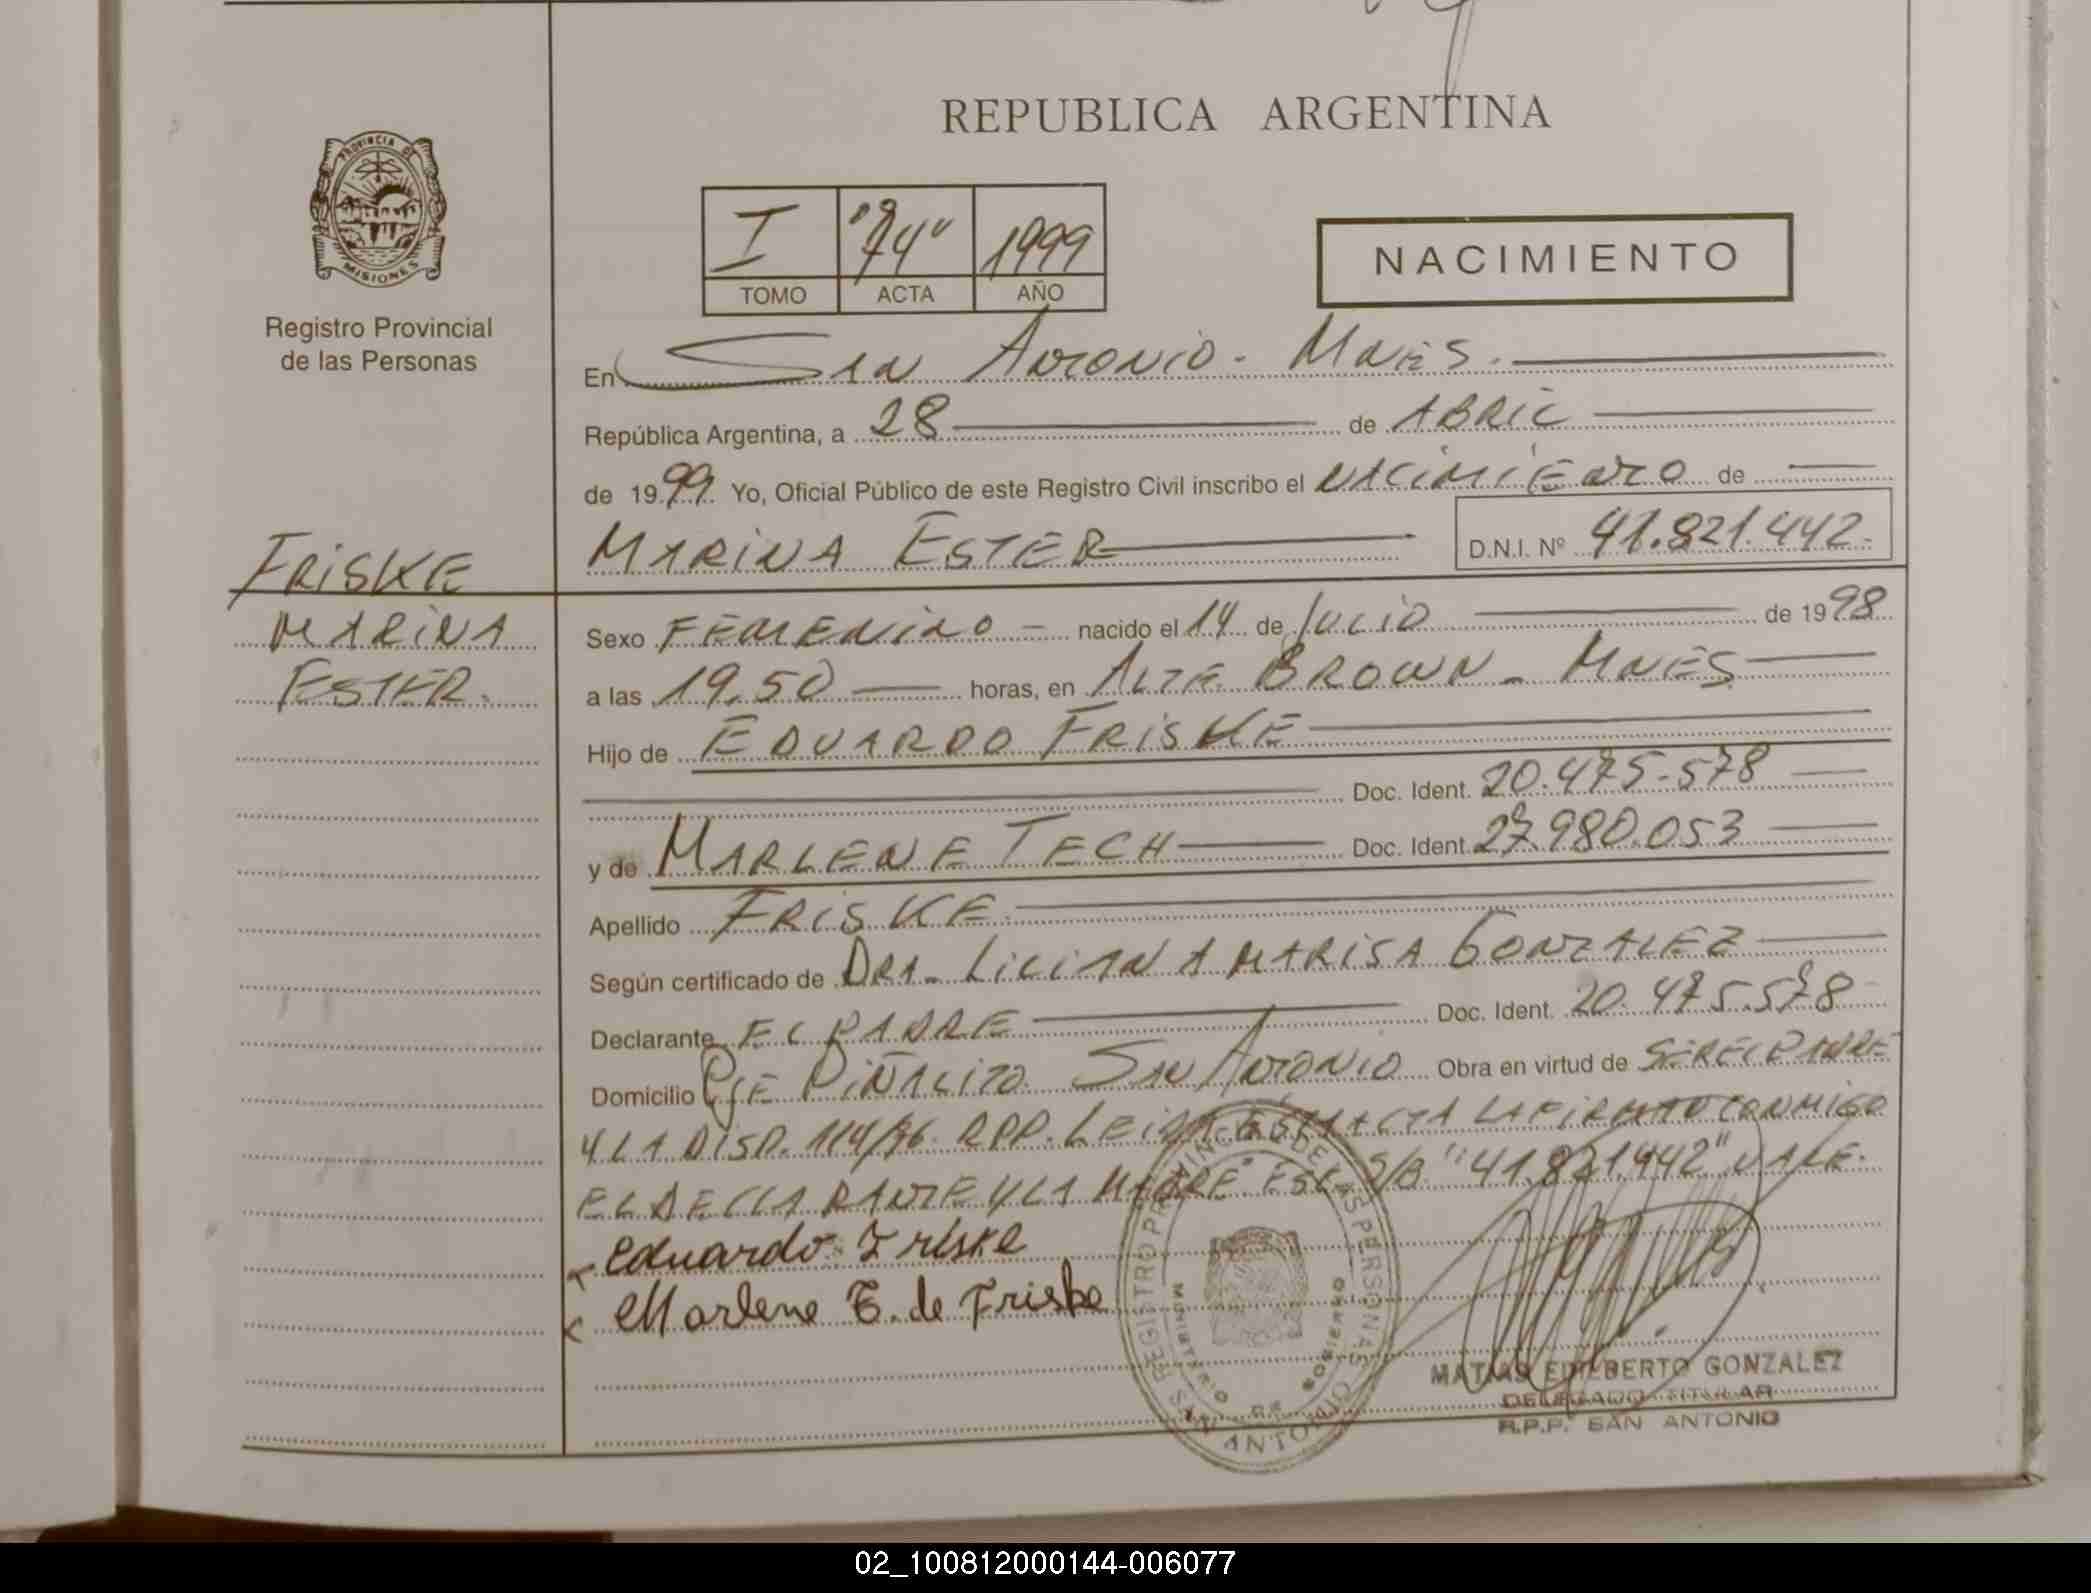 REPUBLICA ARGENTINA
PROVINCIA DE
MISIONES
Registro Provincial
de las Personas
I "74" 1999
TOMO ACTA AÑO
NACIMIENTO
En SAN ANTONIO - MNES.
República Argentina, a 28 de ABRIL
de 1999. Yo, Oficial Público de este Registro Civil inscribo el NACIMIENTO de
MARINA ESTER D.N.I. Nº 41.821.442.-
FRISKE
MARINA
ESTER.
Sexo FEMENINO - nacido el 14 de JULIO de 1998
a las 19,50 horas, en ALTE BROWN - MNES
Hijo de EDUARDO FRISKE
Doc. Ident. 20.475.578
y de MARLENE TECH Doc. Ident. 27.980.053
Apellido FRISKE
Según certificado de DRA. LILIANA MARISA GONZALEZ
Declarante EL PADRE Doc. Ident. 20.475.578
Domicilio PJE PIÑALITO SAN ANTONIO Obra en virtud de SER EL PADRE
Y LA DISP. 114/96. RPP. LEIDA ESTA ACTA LA FIRMAN CONMIGO
EL DECLARANTE Y LA MADRE ESC. S/B "41.821.442" VALE.
Eduardo Friske
Marlene T. de Friske
REGISTRO PROVINCIAL DE LAS PERSONAS
MINISTERIO DE GOBIERNO
SAN ANTONIO
MATIAS EDILBERTO GONZALEZ
DELEGADO TITULAR
R.P.P. SAN ANTONIO
02_100812000144-006077